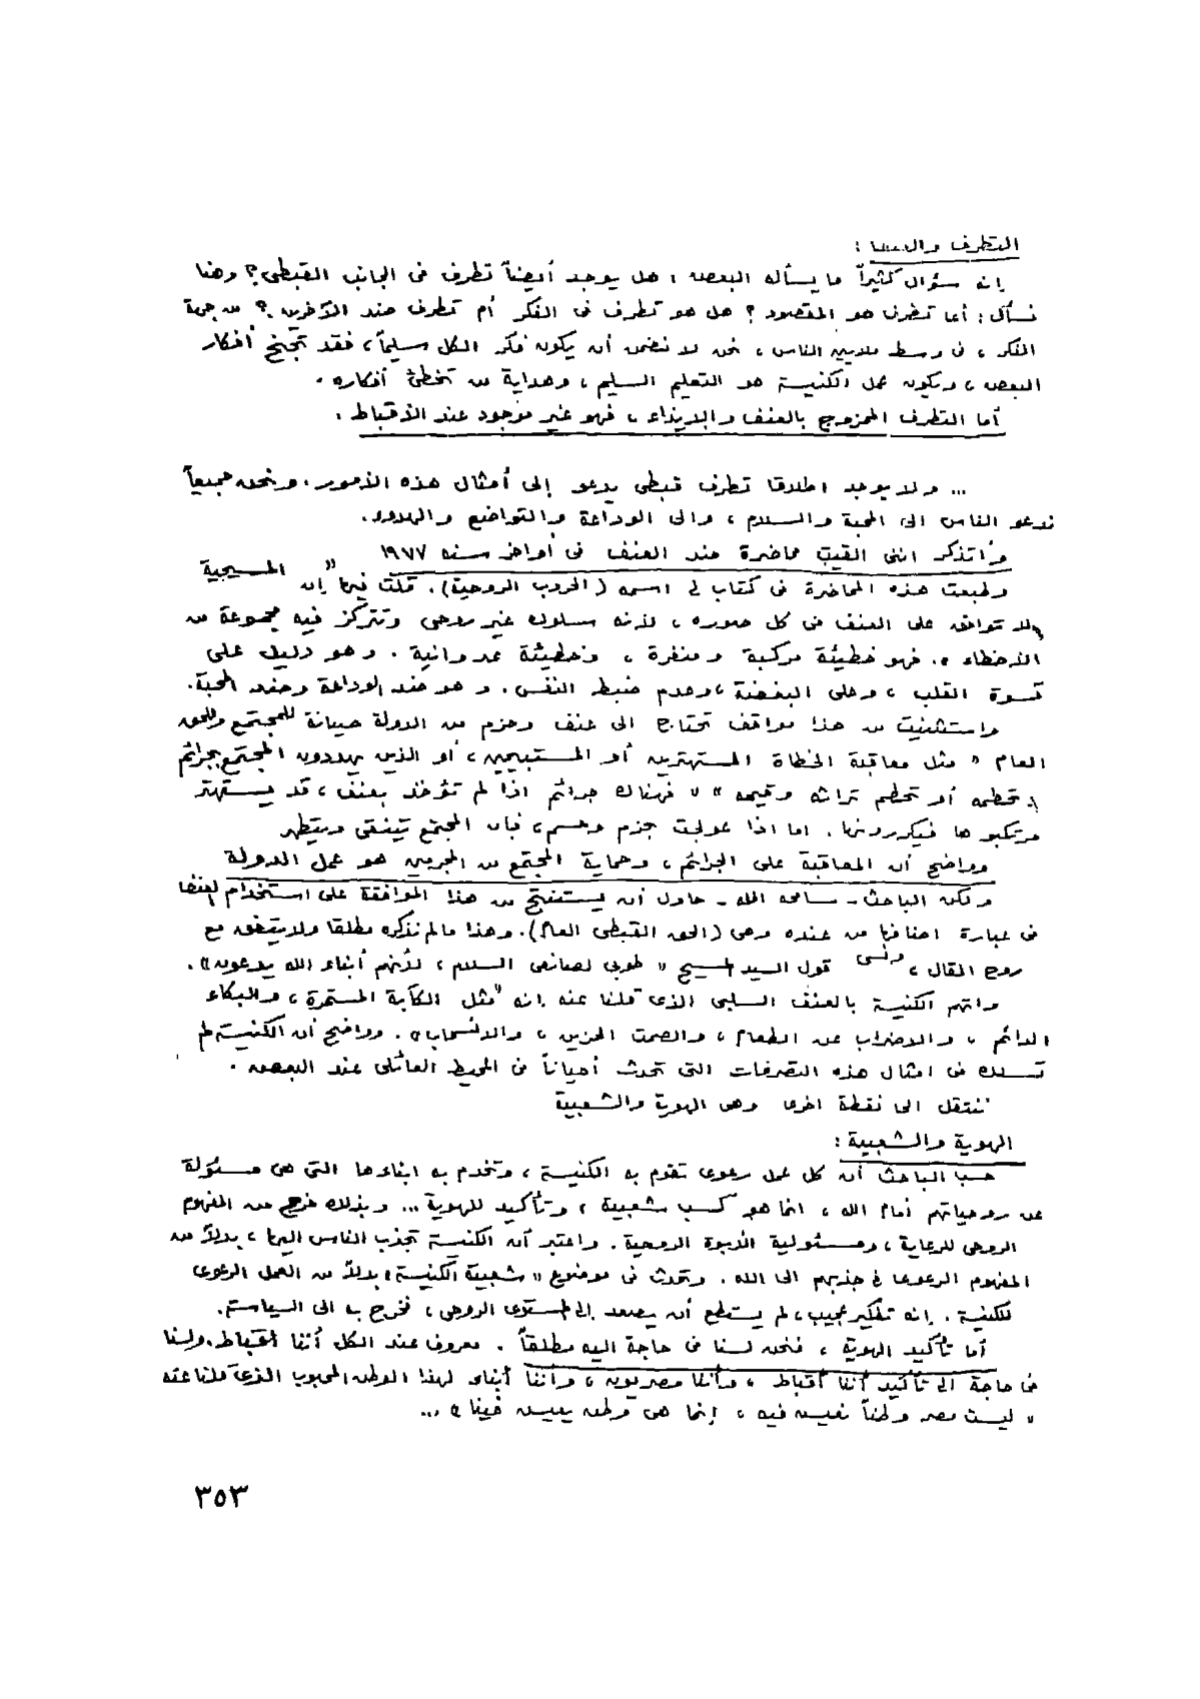 التطرف والعنف :
إنه سؤال كثيراً ما يسأله البعض : هل يوجد أيضاً تطرف فى الجانب القبطى ؟ وهنا
نسأل : أى تطرف هو المقصود ؟ هل هو تطرف فى الفكر أم تطرف ضد الآخرين ؟ من جهة
الفكر ، فى وسط ملايين الناس ، نحن لا نضمن أن يكون فكر الكل سليماً ، فقد تجنح أفكار
البعض ، ويكون عمل الكنيسة هو التعليم السليم ، وهداية من تخطئ أفكاره .
أما التطرف الممزوج بالعنف والإيذاء ، فهو غير موجود عند الأقباط .
... ولا يوجد اطلاقا تطرف قبطى يدعو إلى أمثال هذه الأمور . ونحن جميعاً
ندعو الناس الى المحبة والسلام ، والى الوداعة والتواضع والهدوء .
وأتذكر اننى القيت محاضرة ضد العنف فى أواخر سنة ١٩٧٧
وطبعت هذه المحاضرة فى كتاب لى اسمه ( الحروب الروحية ) . قلت فيها إن " المسيحية
لا توافق على العنف فى كل صوره ، لأنه سلوك غير روحى وتتركز فيه مجموعة من
الأخطاء " . فهو خطيئة مركبة ومنفرة ، وخطيئة عدوانية . وهو دليل على
قسوة القلب ، وعلى البغضة ، وعدم ضبط النفس . وهو ضد الوداعة وضد المحبة .
واستثنيت من هذا مواقف تحتاج الى عنف وحزم من الدولة صيانة للمجتمع وللحق
العام " مثل معاقبة الخطاة المستهترين أو المستبيحين ، أو الذين يهددون المجتمع بجرائم
تحطمه أو تحطم تراثه وقيمه " " فهناك جرائم اذا لم تؤخذ بعنف ، قد يستهتر
مرتكبوها فيكررونها . اما اذا عولجت بحزم وحسم ، فإن المجتمع يتنقى ويتطهر
وواضح أن المعاقبة على الجرائم ، وحماية المجتمع من المجرمين هو عمل الدولة
ولكن الباحث - سامحه الله - حاول أن يستنتج من هذا الموافقة على استخدام العنف
فى عبارة اضافها من عنده وهى ( الحق القبطى العام ) . وهذا مالم نذكره مطلقا ولا يتفق مع
روح المقال ، ونسى قول السيد المسيح " طوبى لصانعى السلام ، لأنهم أبناء الله يدعون " .
واتهم الكنيسة بالعنف السلبى الذى قلنا عنه إنه " مثل الكآبة المستمرة ، والبكاء
الدائم ، والاضراب عن الطعام ، والصمت الحزين ، والانسحاب " . وواضح أن الكنيسة لم
تسلك فى امثال هذه التصرفات التى تحدث أحياناً فى المحيط العائلى عند البعض .
ننتقل الى نقطة اخرى وهى الهوية والشعبية
الهوية والشعبية :
حسب الباحث أن كل عمل رعوى تقوم به الكنيسة ، وتخدم به ابناءها التى هى مسئولة
عن روحياتهم أمام الله ، انما هو كسب شعبية ، وتأكيد للهوية ... وبذلك خرج من المفهوم
الروحى للرعاية ، ومسئولية الأبوة الروحية . واعتبر أن الكنيسة تجذب الناس اليها ، بدلاً من
المفهوم الرعوى فى جذبهم الى الله . وتحدث فى موضوع " شعبية الكنيسة " بدلاً من العمل الرعوى
للكنيسة . إنه تفكير عجيب ، لم يستطع أن يصعد إلى المستوى الروحى ، فخرج به الى السياسة .
أما تأكيد الهوية ، فنحن لسنا فى حاجة اليه مطلقاً . معروف عند الكل أننا أقباط . ولسنا
فى حاجة الى تأكيد أننا أقباط ، وأننا مصريون ، وأننا أبناء لهذا الوطن المحبوب الذى قلنا عنه
" ليست مصر وطناً نعيش فيه ، إنما هى وطن يعيش فينا " ...
٣٥٣